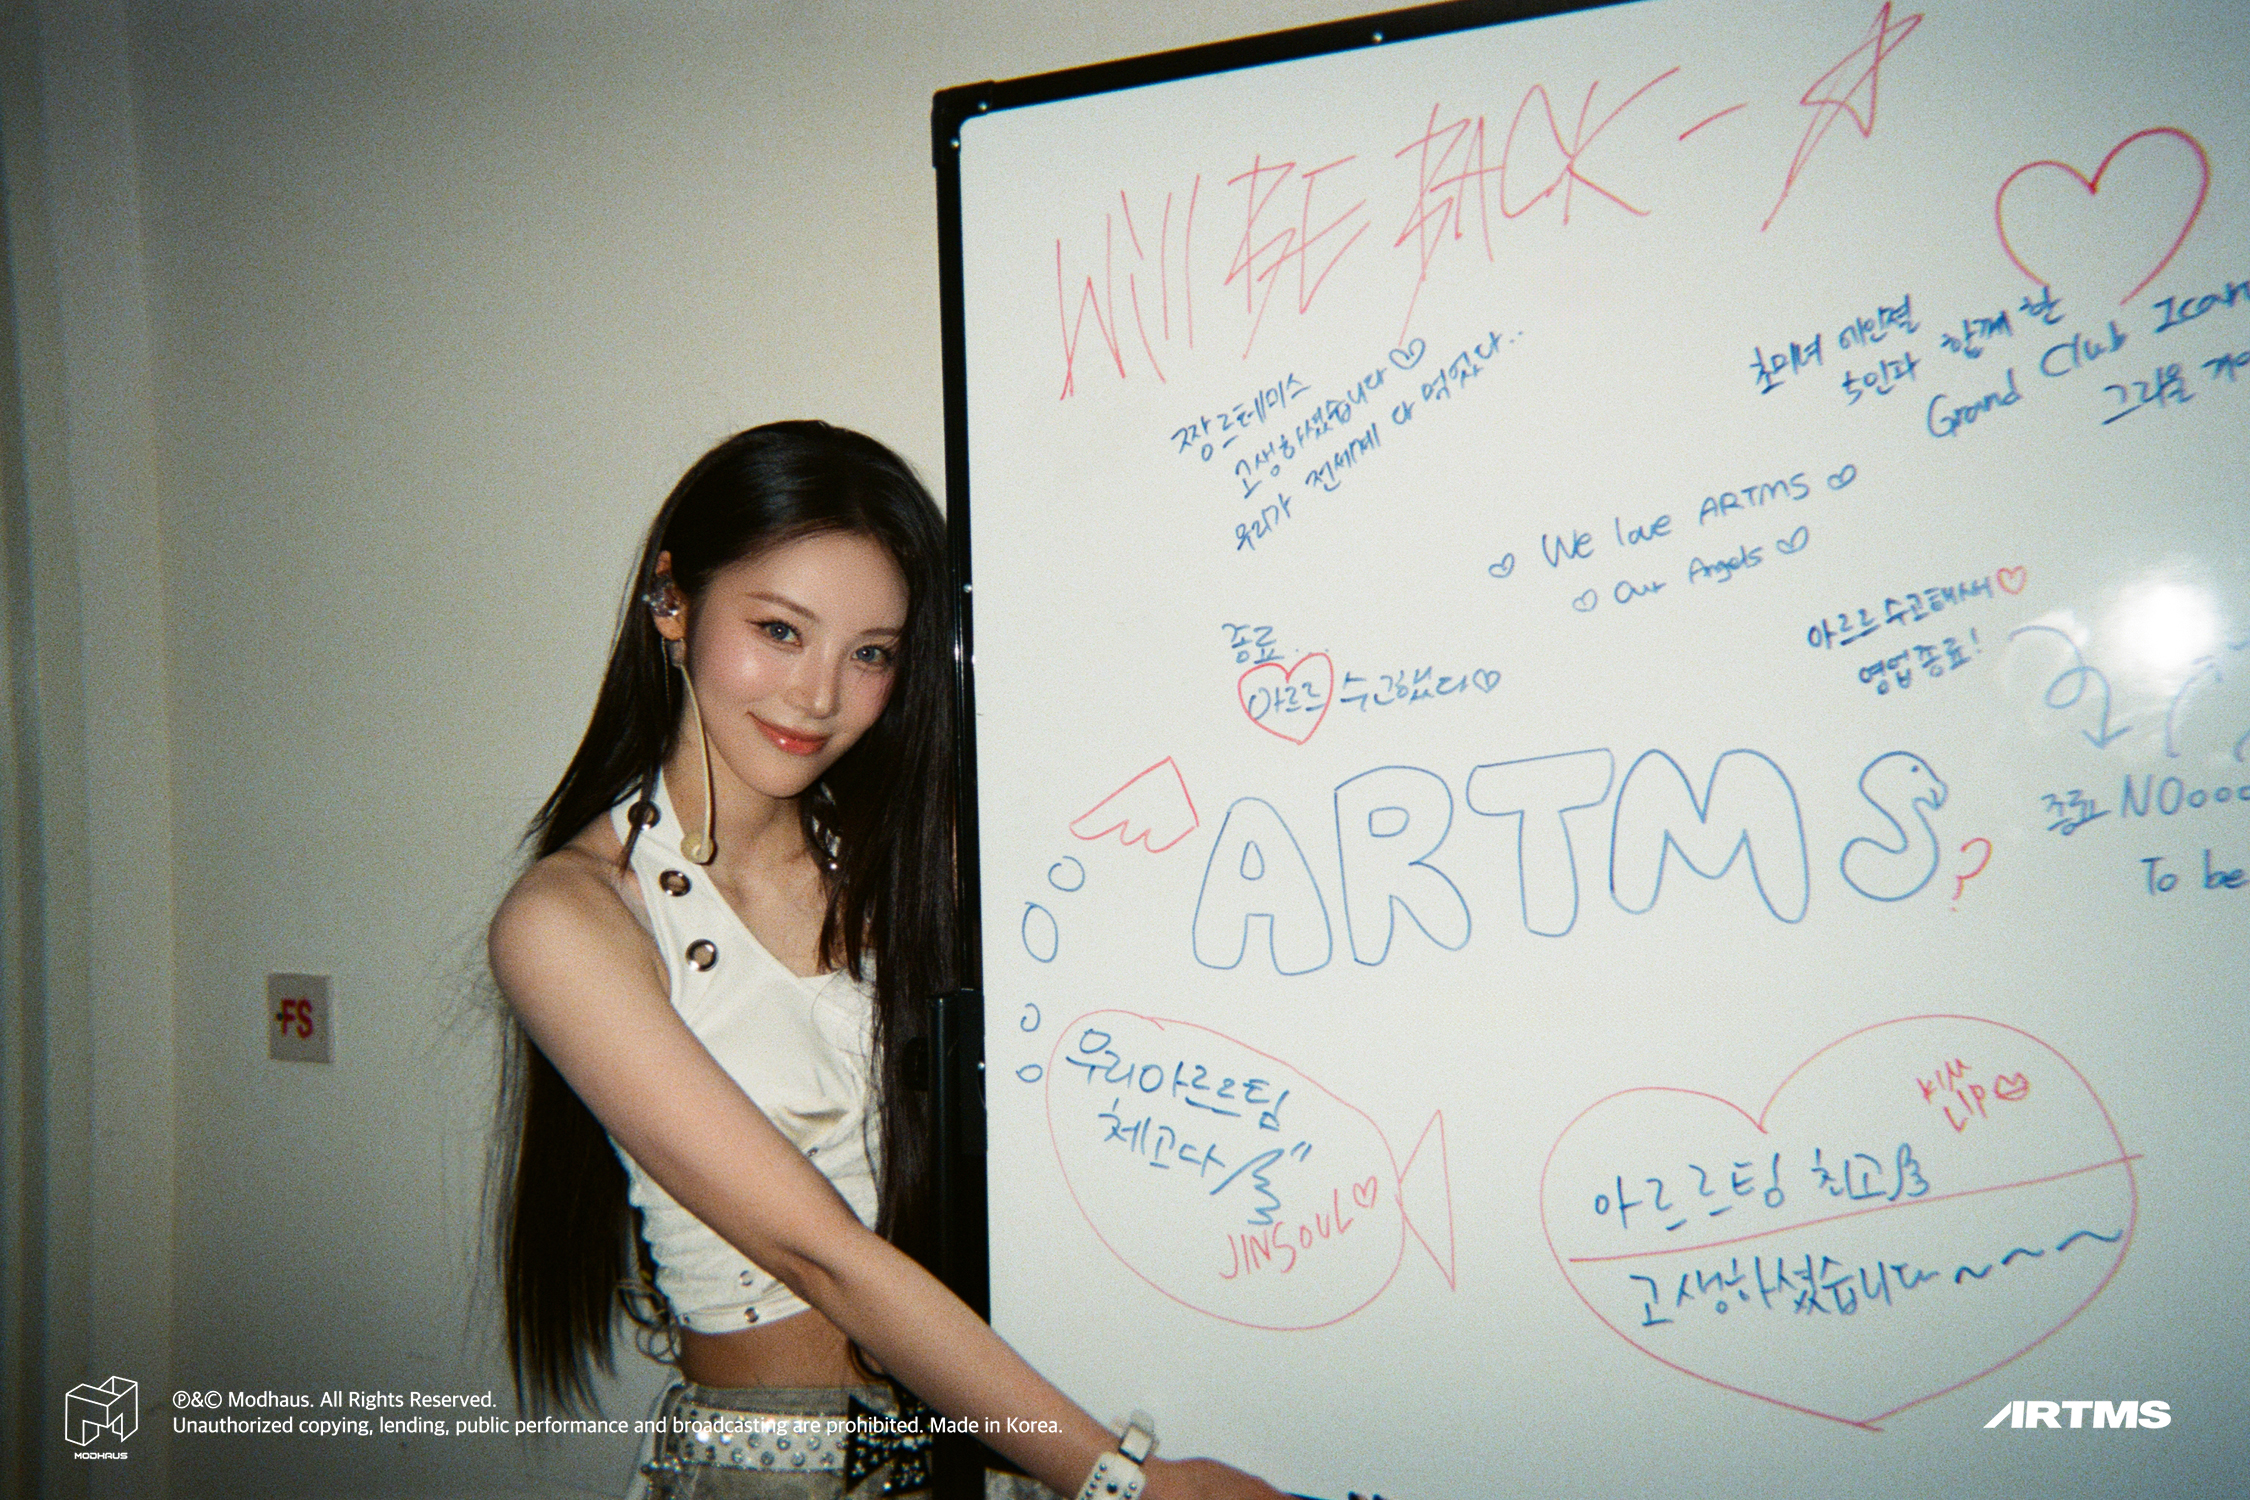 Will BE BACK -
짱르테미스
고생하셨습니다♡
우리가 전세계 다 먹었다..
초미녀 에인절
5인과 함께 한
Grand Club Icaru
그리울 거야
♡ We love ARTMS ♡
♡ Our Angels ♡
종료...
아르르 수고했다♡
아르르 수고했서♡
영업종료!
종료 NOooo
To be
ARTMS?
우리아르르팀
체고다
JINSOUL♡
KIM
LIP
아르르팀 최고
고생하셨습니다~~~
FS
MODHAUS
℗&© Modhaus. All Rights Reserved.
Unauthorized copying, lending, public performance and broadcasting are prohibited. Made in Korea.
ARTMS